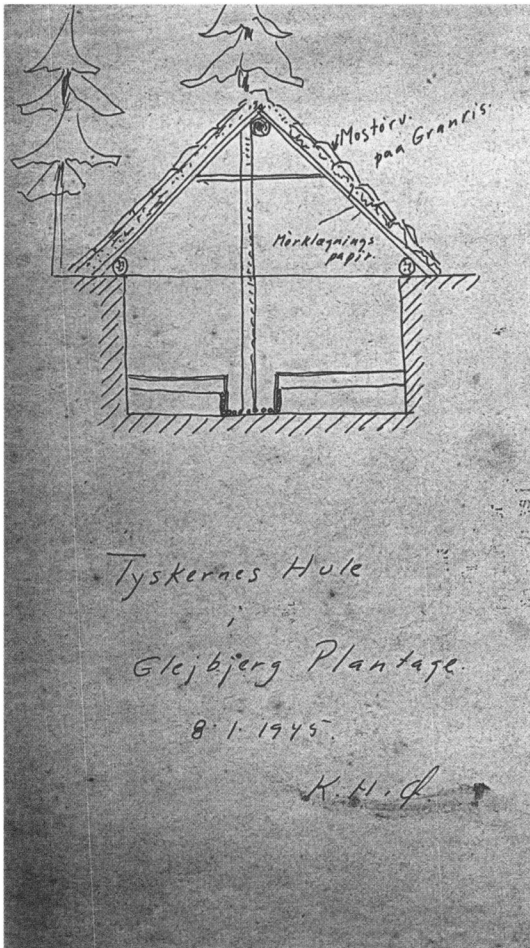 Mostörv.
paa Granris.
Mörklægnings
papir.
Tyskernes Hule
i
Glejbjerg Plantage.
8·1·1945.
K.H.Ø.